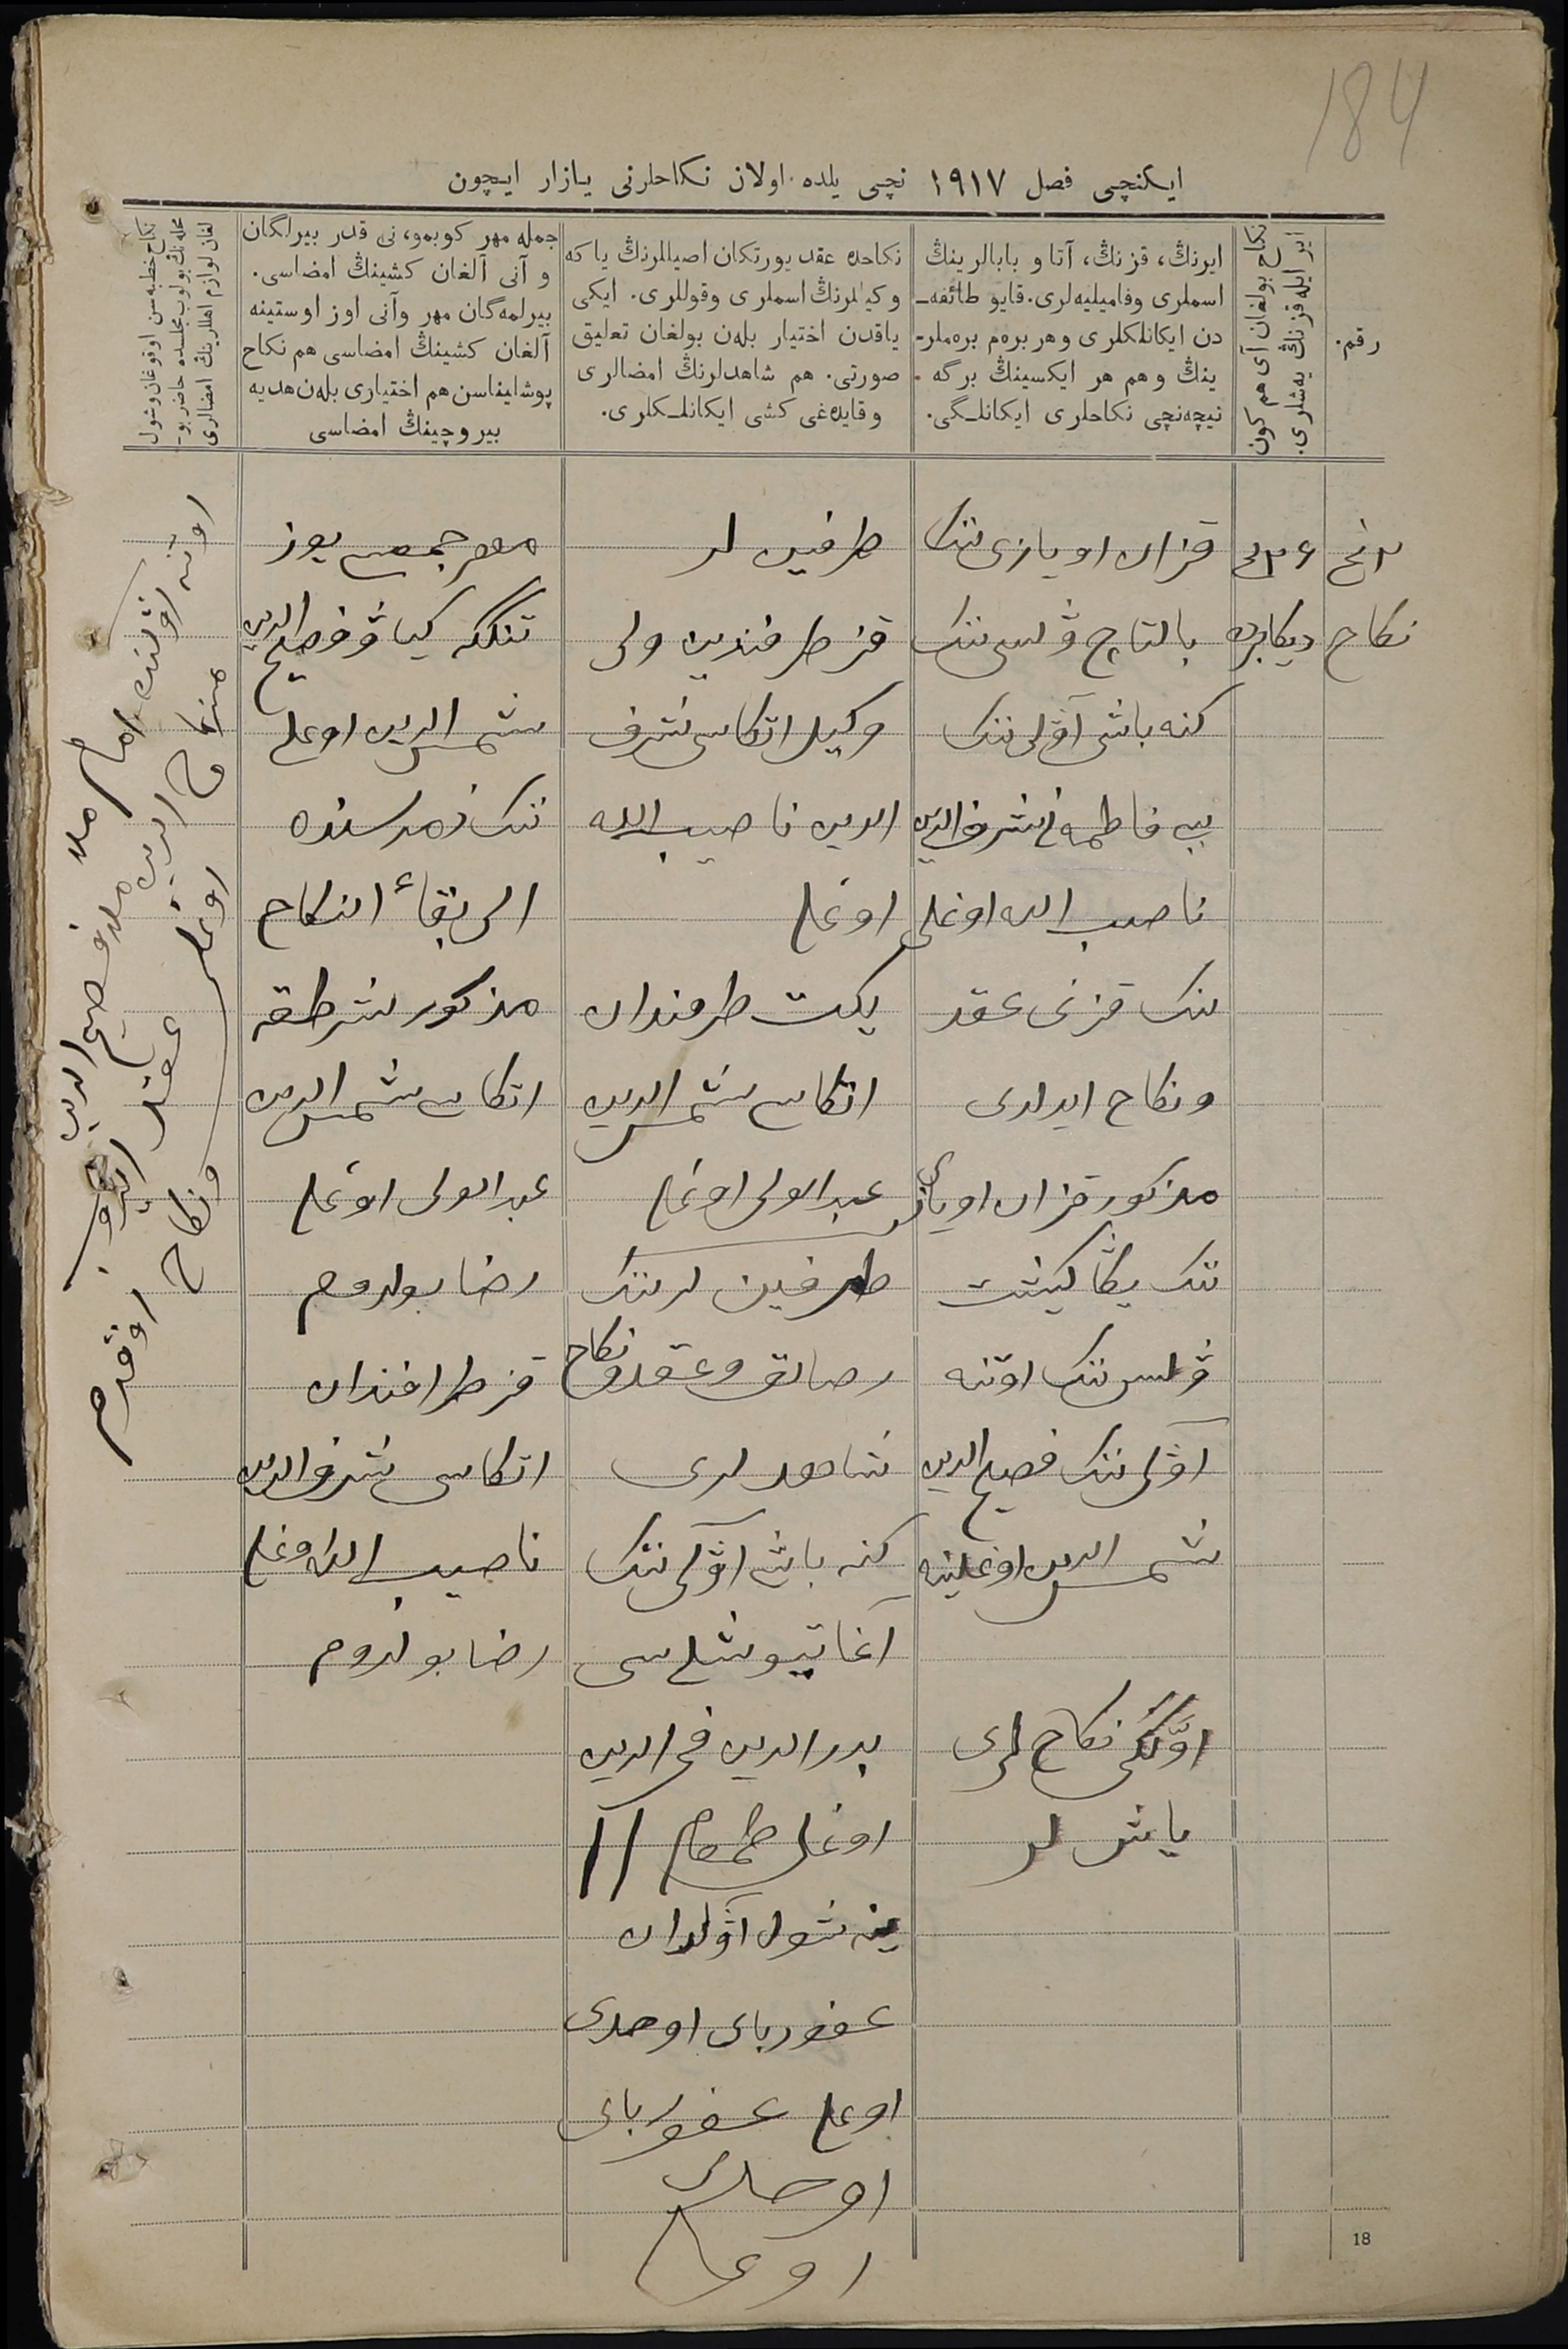 184
ایکنچی فصل ١٩١٧ نچی یلده اولان نکاحلرنی یازار ایچون
رقم.
نکاح بولغان آی هم کون
ایر ایله قزنڭ یه‌شلری.
ایرنڭ، قزنڭ، آتا و بابالرینڭ
اسملری وفامیلیه‌لری. قایو طائفه‌ـ
دن ایکانلکلری و هر بره‌م بره‌ملر-
ینڭ و هم هر ایکسینڭ برگه
نیچه‌نچی نکاحلری ایکانلـگی.
نکاحده عقد یورتکان اصیللرنڭ یا که
وکیللرنڭ اسملری وقوللری. ایکی
یاقدن اختیار بله‌ن بولغان تعلیق
صورتی. هم شاهدلرنڭ امضالری
و قایده‌غی کشی ایکانلـکلری.
جمله مهر کوبمو، نی قدر بیرلگان
و آنی آلغان کشینڭ امضاسی.
بیرلمه‌گان مهر وآنی اوز اوستینه
آلغان کشینڭ امضاسی هم نکاح
پوشایناسن هم اختیاری بله‌ن هدیه
بیروچینڭ امضاسی
نکاح خطبه‌سن اوقوغان وشول
محله‌نڭ بولوب مجلسده حاضر بو-
لغان لوازم اهللرینڭ امضالری
٢نچی
نکاح
٢٦نچی
دیکابرده
قزان اویازی ننک
بالتاچ ۋلسی ننک
کنه باش آۋلی ننک
بیبی فاطمه شرف الدین
ناصیب الله اوغلی
ننک قزنی عقد
و نکاح ایدلدی
مذکور قزان اویازی
ننک یڭا کیشیت
ۋلس ننک اوتنه
آۋلی ننک فصیح الدین
شمس الدین اوغلینه
اوّلگی نکاح لری
یاش لر
طرفین لر
قز طرفندین ولی
وکیل اتکاسی شرف
الدین ناصیب الله
اوغلی
یکت طرفندان
اتکاسی شمس الدین
عبد الولی اوغلی
طرفین لر ننک
رضالق و عقد و نکاح
شاهد لری
کنه باش آۋلی ننک
آغا تیوشلی سی
بدر الدین فخر الدین
اوغلی
ینه شول آۋلدان
غفور بای اوحدی
اوغلی غفور بای
اوحدی
اوغلی
مهر جمعسی یوز
تنککه کیاۋ فصیح الدین
شمس الدین اوغلی
ننک ذمه سنده
الی بقاء النکاح
مذکور شرطقه
اتکاسی شمس الدین
عبد الولی اوغلی
رضا بولدوم
قز طرافندان
اتکاسی شرف الدین
ناصیب الله اوغلی
رضا بولدوم
اوتنه آۋلننک امام ملا
منهاج الدین ملا فصیح الدین
اوغلی عقد ایدوب
و نکاح اوقدم
18